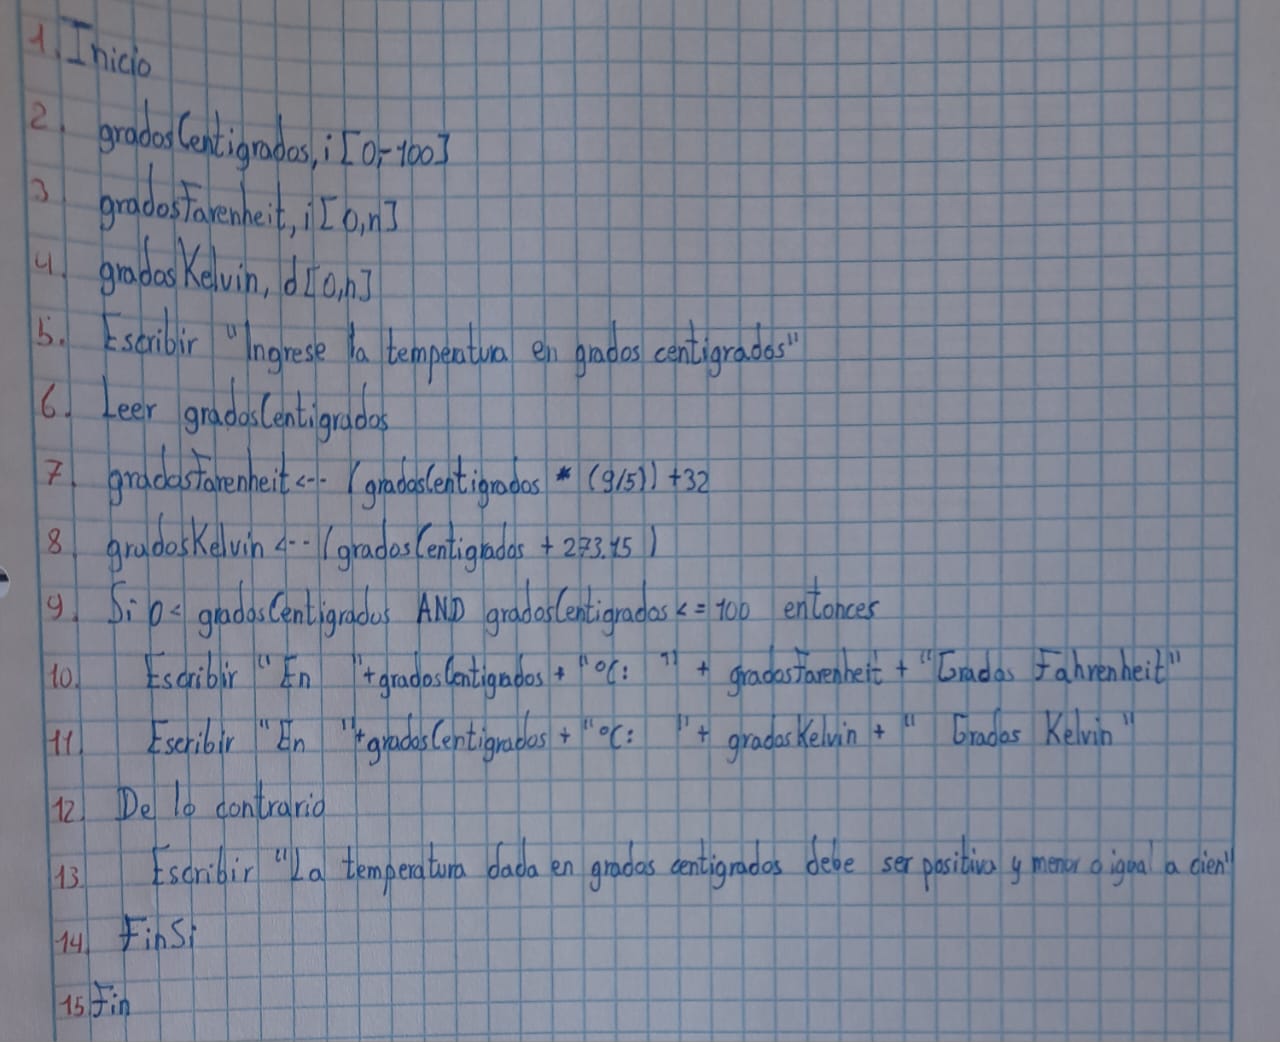 1. Inicio
2. gradosCentigrados, i [0,-100]
3 gradosFarenheit, i [0,n]
4. gradosKelvin, d [0,n]
5. Escribir "Ingrese la temperatura en grados centigrados"
6. Leer gradosCentigrados
7. gradosFarenheit <-- (gradosCentigrados * (9/5)) +32
8 gradosKelvin <-- (gradosCentigrados + 273.15 )
9. Si 0< gradosCentigrados AND gradosCentigrados <= 100 entonces
10. Escribir "En "+gradosCentigrados + "°C: " + gradosFarenheit + "Grados Fahrenheit"
11. Escribir "En "+gradosCentigrados + "°C: "+ gradosKelvin + " Grados Kelvin"
12. De lo contrario
13 Escribir "La temperatura dada en grados centigrados debe ser positiva y menor o igual a cien"
14. FinSi
15. Fin